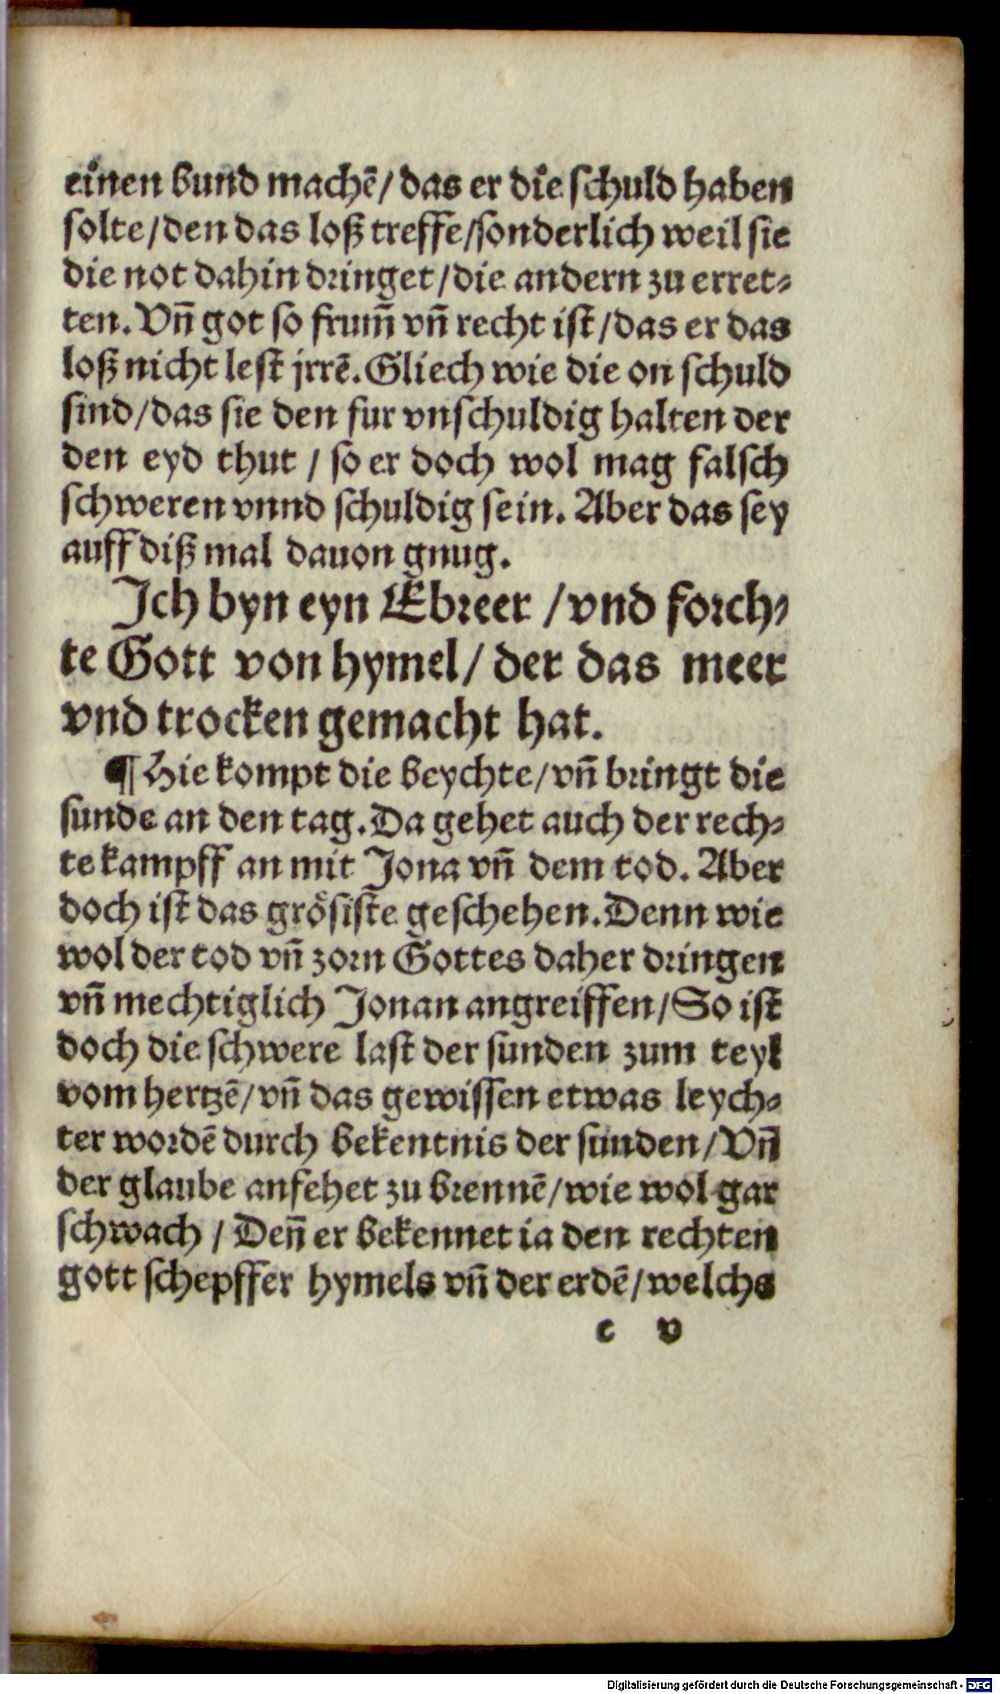 einen bund machē/ das er die schuld haben
solte/den das loß treffe/sonderlich weil sie
die not dahin dringet/die andern zu erret⸗
ten. Vñ got so frum̃ vñ recht ist/das er das
loß nicht lest jrrē. Gliech wie die on schuld
sind/das sie den fur vnschuldig halten der
den eyd thut / so er doch wol mag falsch
schweren vnnd schuldig sein. Aber das sey
auff diß mal dauon gnug.
Ich byn eyn Ebreer /vnd forch⸗
te Gott von hymel/ der das meer
vnd trocken gemacht hat.
¶ Hie kompt die beychte/vñ bringt die
sunde an den tag. Da gehet auch der rech⸗
te kampff an mit Jona vñ dem tod. Aber
doch ist das grösiste geschehen. Denn wie
wol der tod vñ zorn Gottes daher dringen
vñ mechtiglich Jonan angreiffen/So ist
doch die schwere last der sunden zum teyl
vom hertzē/vñ das gewissen etwas leych⸗
ter wordē durch bekentnis der sunden/Vñ
der glaube anfehet zu brennē/wie wol gar
schwach / Deñ er bekennet ia den rechten
gott schepffer hymels vñ der erdē/welchs
c v
Digitalisierung gefördert durch die Deutsche Forschungsgemeinschaft - DFG